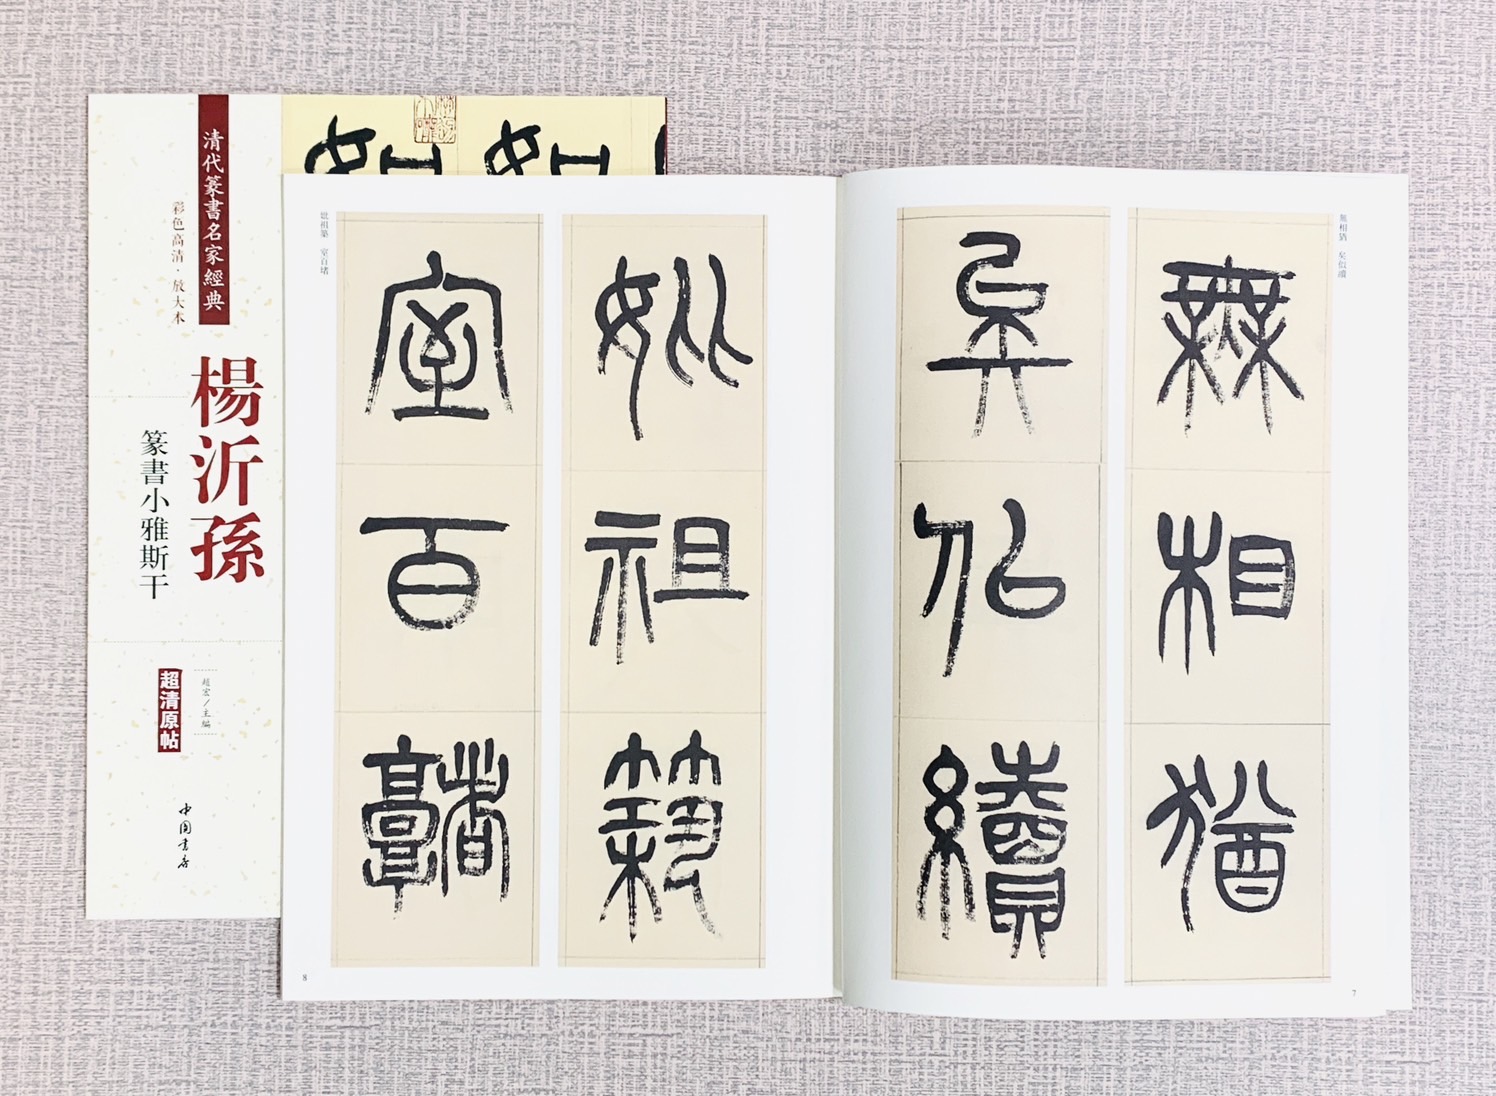 清代篆書名家經典
彩色高清·放大本
楊沂孫
篆書小雅斯干
趙宏/主編
超清原帖
中国書店
無相猶 矣似續
無相猶
矣似續
7
妣祖築
室百堵
妣祖築 室百堵
8